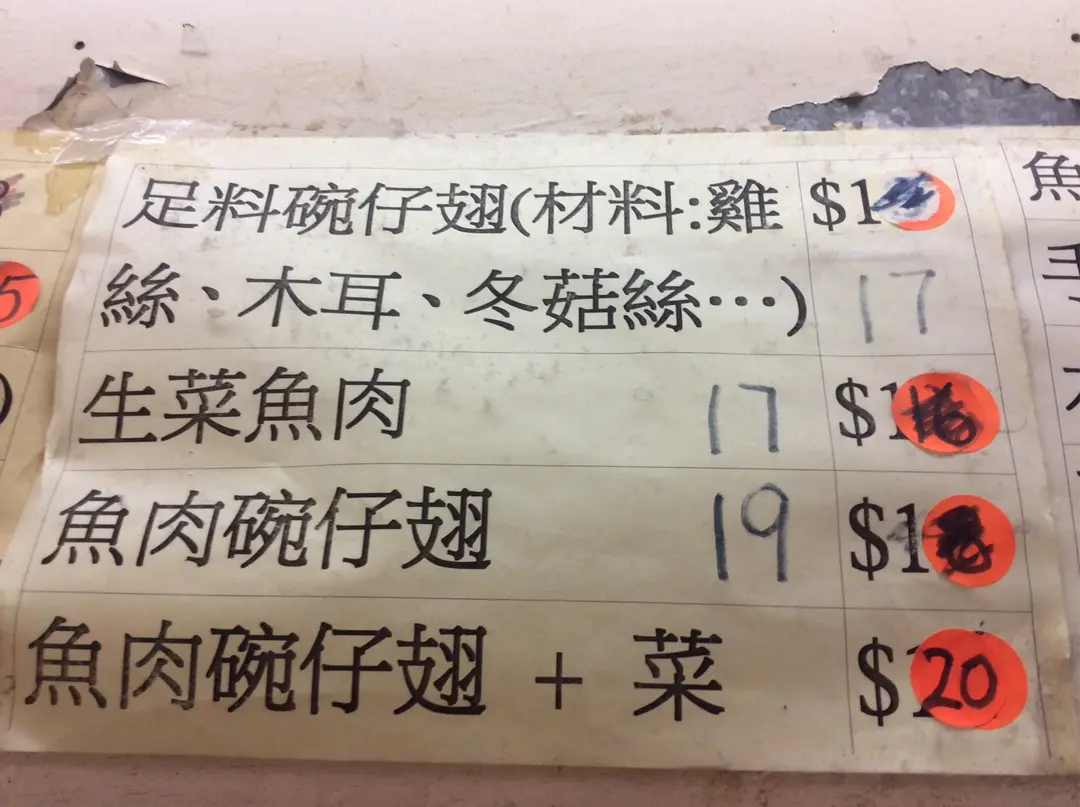 足料碗仔翅(材料:雞 $1
絲、木耳、冬菇絲…) 17
生菜魚肉 17 $1
魚肉碗仔翅 19 $1
魚肉碗仔翅 + 菜 $20
5
魚